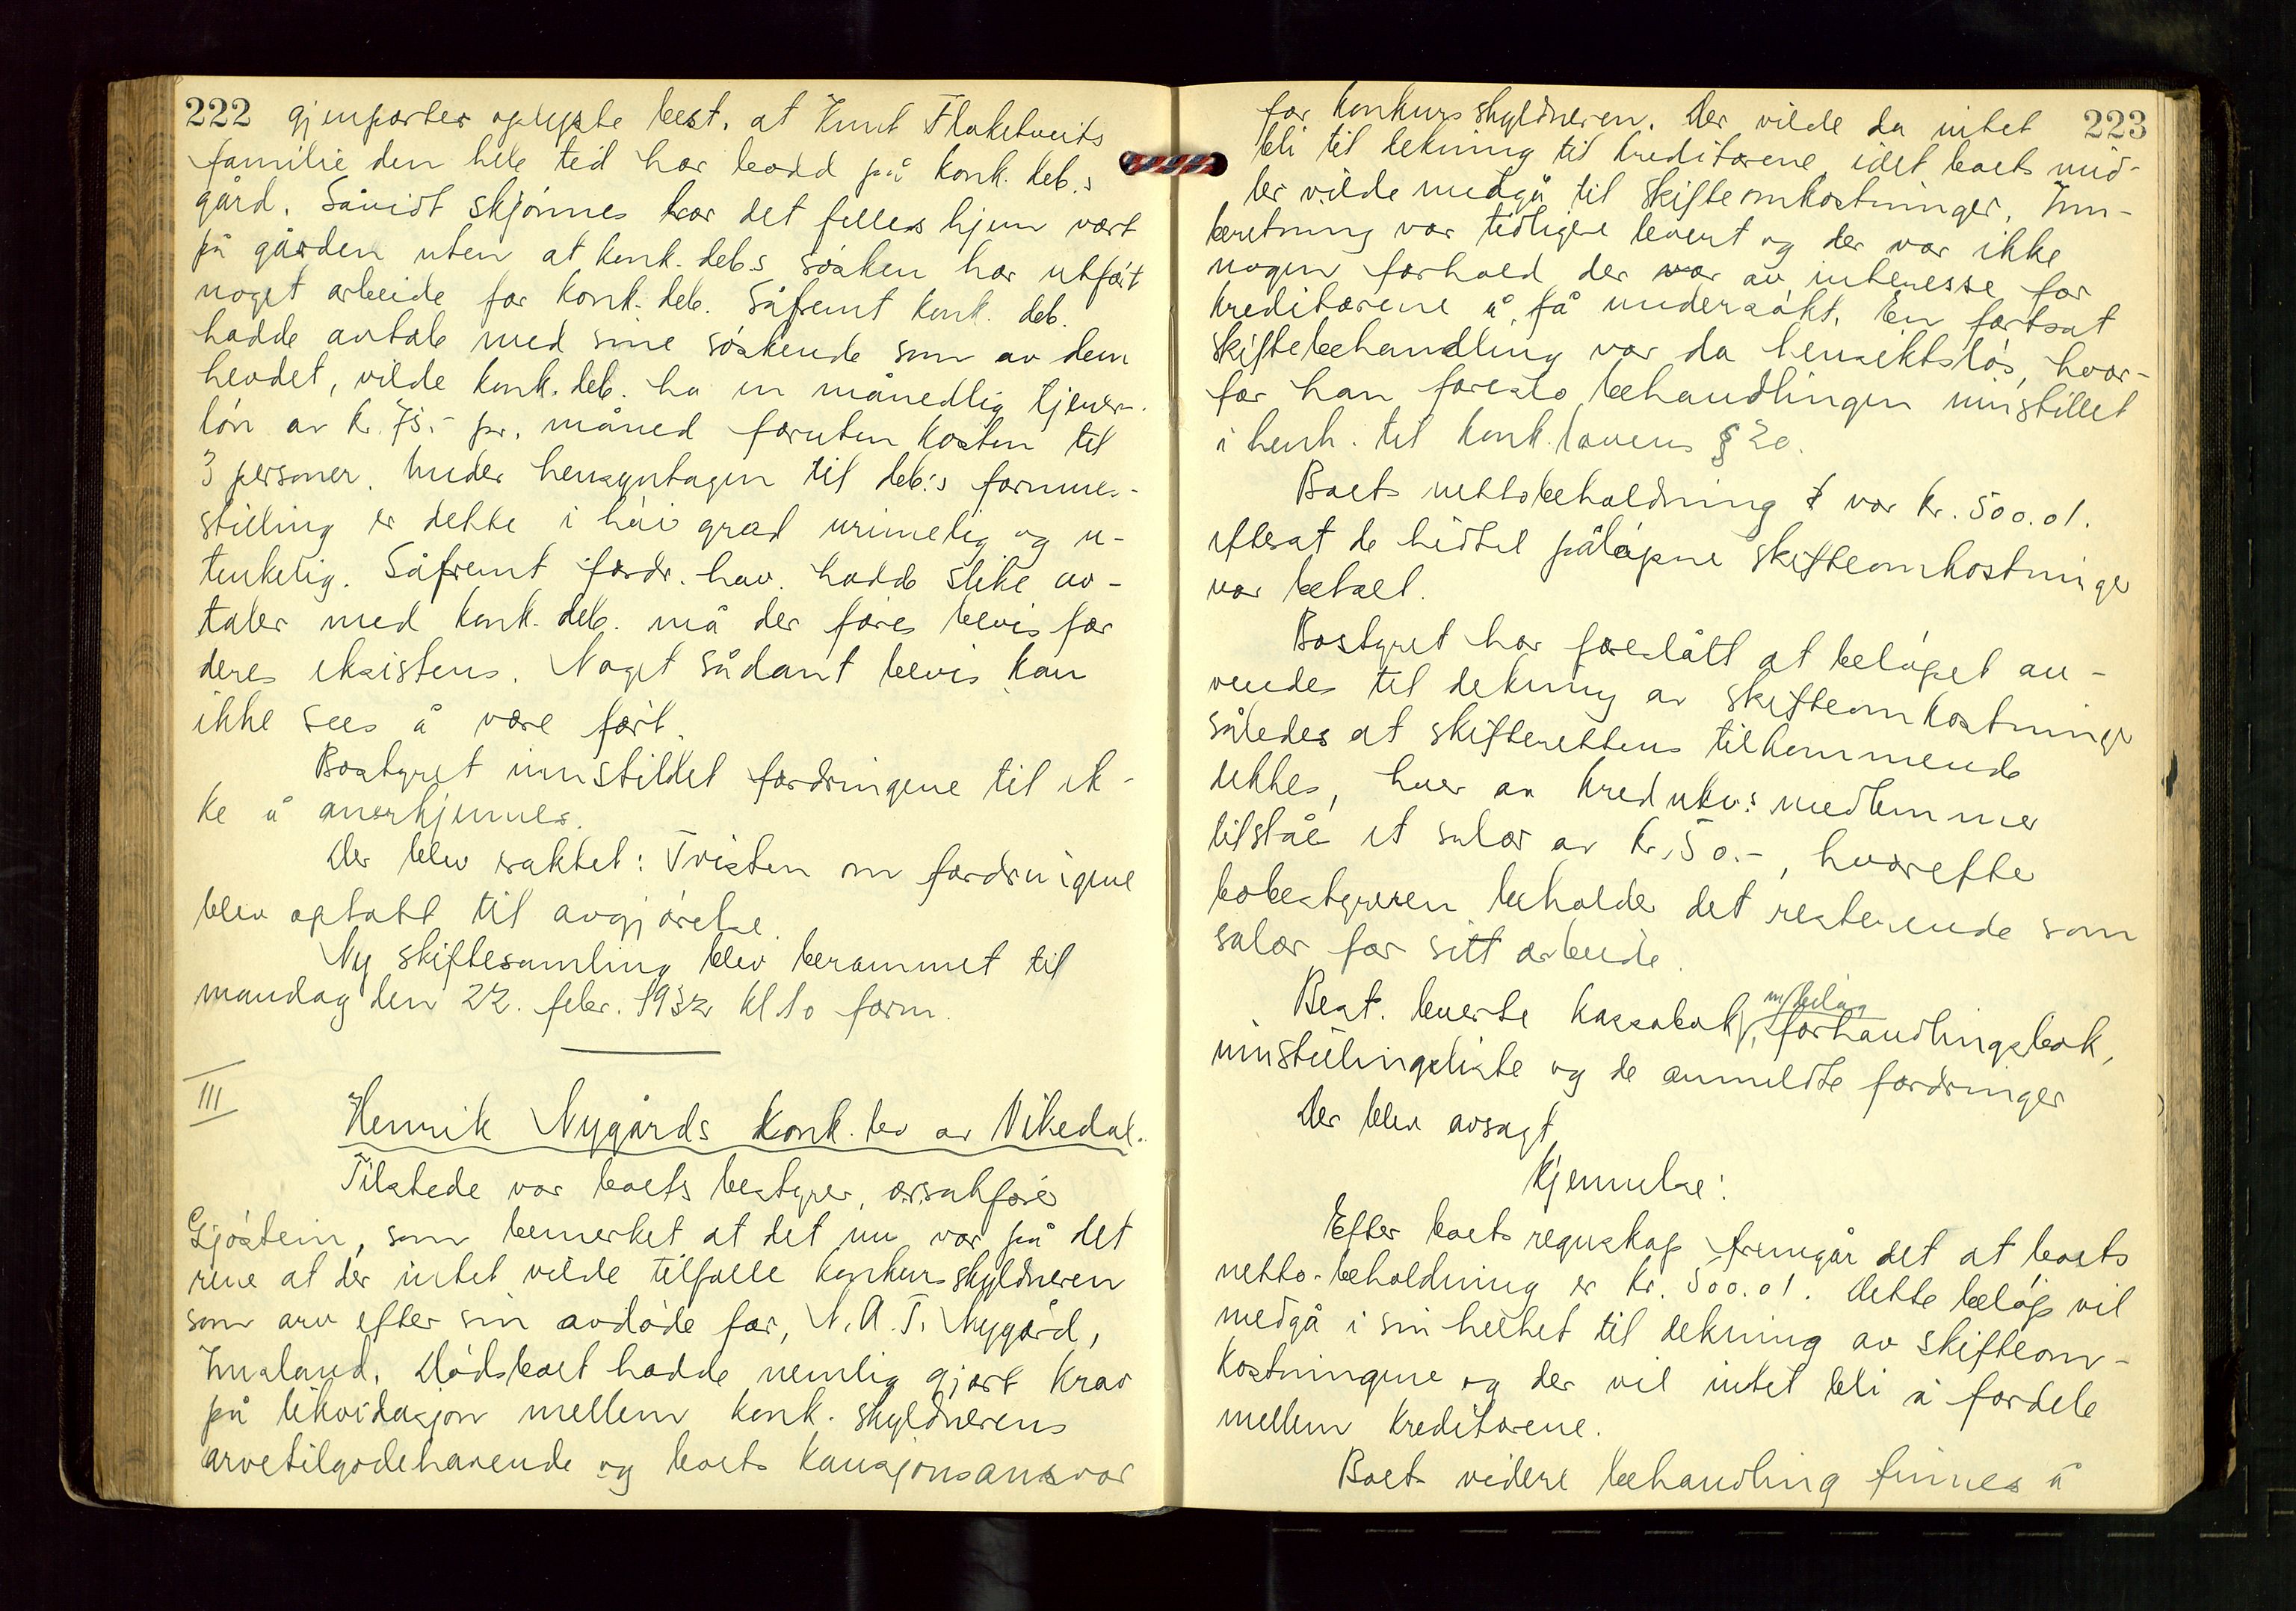 222 gjenparter oplyste best. at Knut Flaketveits
familie den hele tid har bodd på konk. deb.s
gård. Såvidt skjønnes har det felles hjem vært
på gården uten at konk. deb.s søsken har utført
noget arbeide for konk. deb. Såfremt konk. deb.
hadde avtale med sine søskende som av dem
hevdet, vilde konk. deb. ha en månedlig tjener-
løn av kr. 75.- pr. måned foruten kosten til
3 personer. Under hensyntagen til deb.'s formues-
stilling er dette i høi grad urimelig og u-
tenkelig. Såfremt fordr. hav. hadde slike av-
taler med konk. deb. må der føres bevis for
deres eksistens. Noget sådant bevis kan
ikke sees å være ført.
Bostyret innstillet fordringene til ik-
ke å anerkjennes.
Der blev vaktet: Tvisten om fordringene
blev optatt til avgjørelse.
Ny skiftesamling blev berammet til
mandag den 22. febr. 1932 kl 10 form.
III
Henrik Nygårds konk. bo av Vikedal.
Tilstede var boets bestyrer, o.r.sakfører
Gjøstein, som bemerket at det nu var på det
rene at der intet vilde tilfalle konkursskyldneren
som arv efter sin avdøde far, N. A. T. Nygård,
Imsland. Dødsboet hadde nemlig gjort krav
på likvidasjon mellem konk. skyldnerens
arvetilgodehavende og boets kausjonsansvar
223
for konkursskyldneren. Der vilde da intet
bli til dekning til kreditorene idet boets mid-
ler vilde medgå til skifteomkostninger. Inn-
beretning var tidligere levert og der var ikke
nogen forhold der var av interesse for
kreditorene å få undersøkt. En fortsat
skiftebehandling var da hensiktsløs, hvor-
for han foreslo behandlingen innstillet
i henh. til konk.lovens § 20.
Boets nettobeholdning var kr. 500.01.
efterat de hidtil påløpne skifteomkostninger
var betalt.
Bostyret har foreslått at beløpet an-
vendes til dekning av skifteomkostninger
således at skifterettens tilkommende
dekkes, hver av kredukv.s medlemmer
tilståes et salær av kr. 50.-, hvorefter
bobestyreren beholder det resterende som
salær for sitt arbeide.
Best. leverte kassabok m/bilag, forhandlingsbok,
innstillingsliste og de anmeldte fordringer
Der blev avsagt
Kjennelse:
Efter boets regnskap fremgår det at boets
netto-beholdning er kr. 500.01. Dette beløp vil
medgå i sin helhet til dekning av skifteom-
kostningene og der vil intet bli å fordele
mellem kreditorene.
Boets videre behandling finnes å